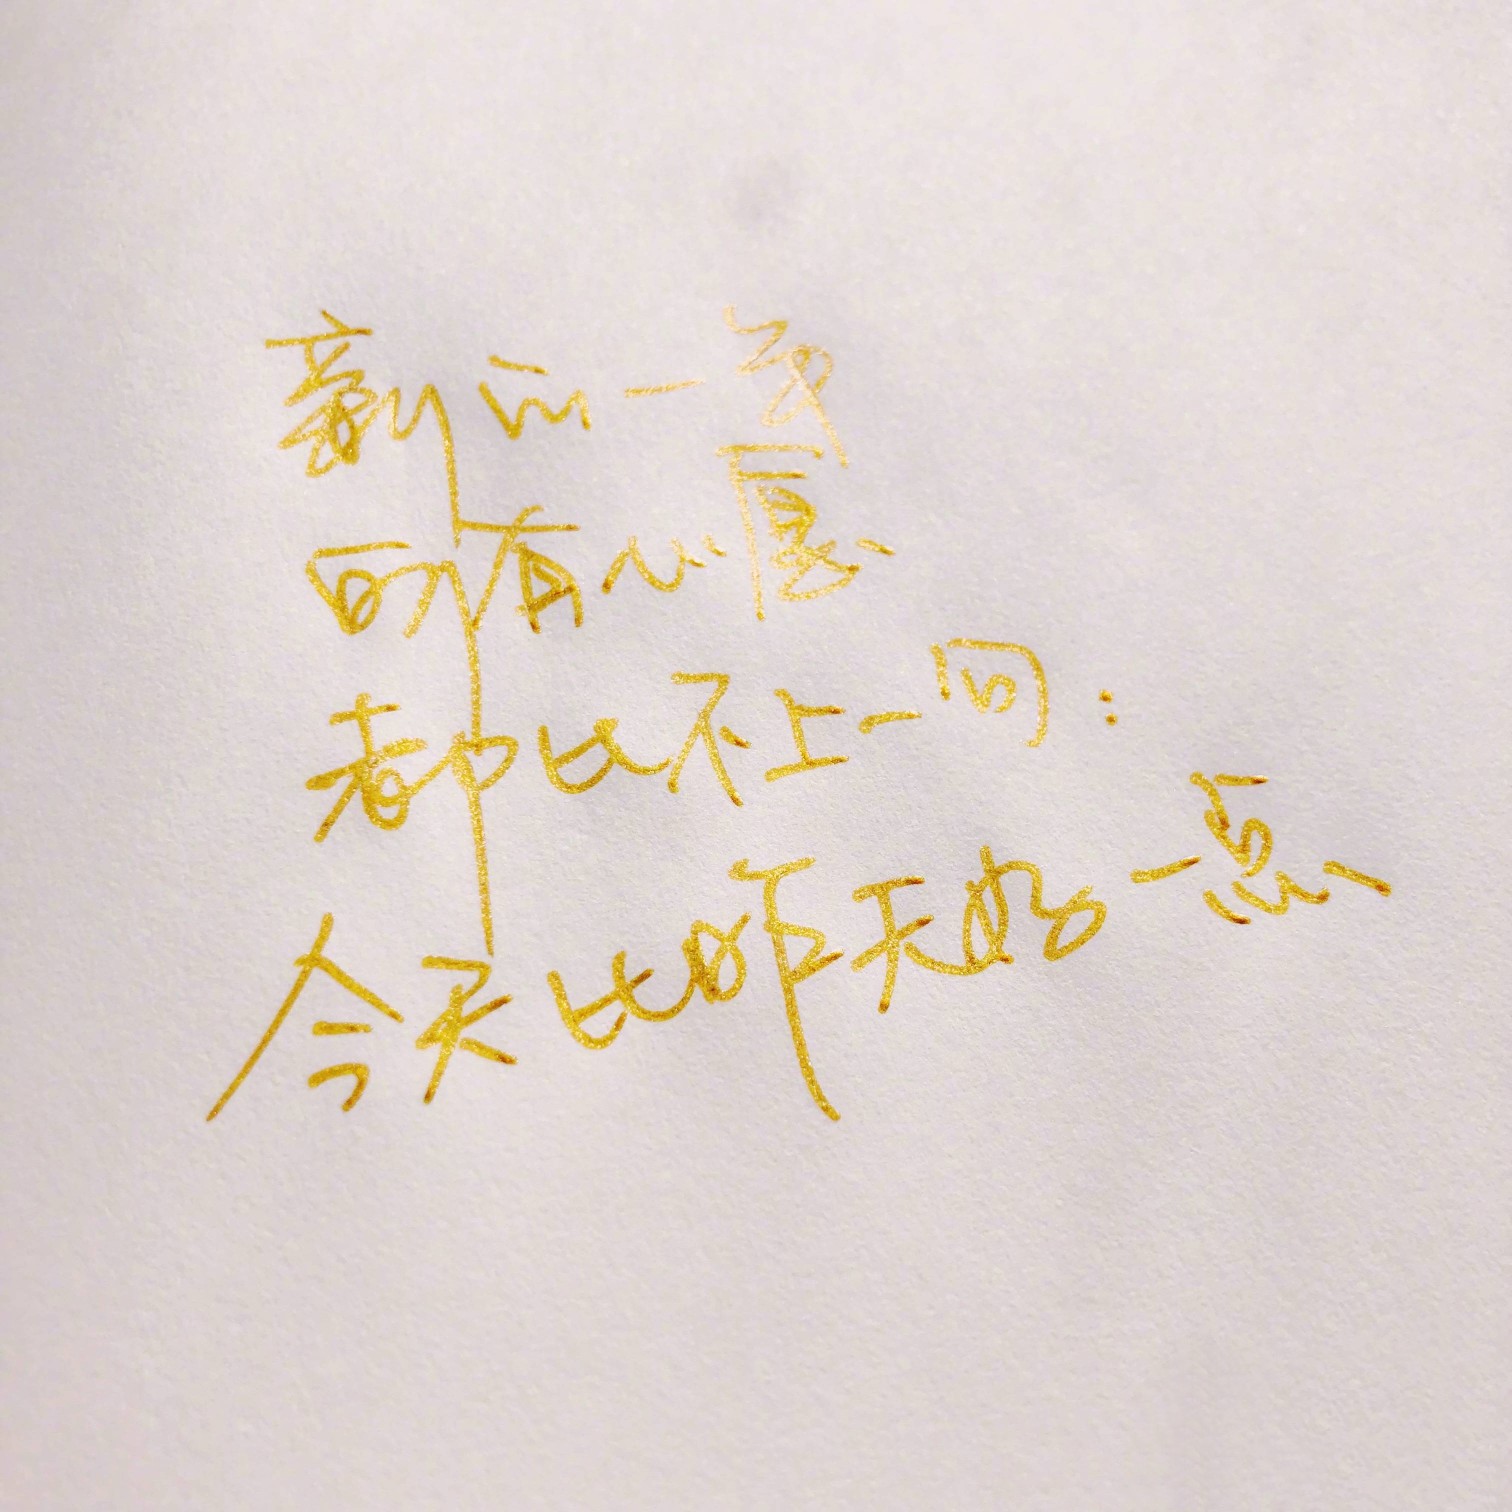 新的一年
所有心愿
都比不上一句：
今天比昨天好一点